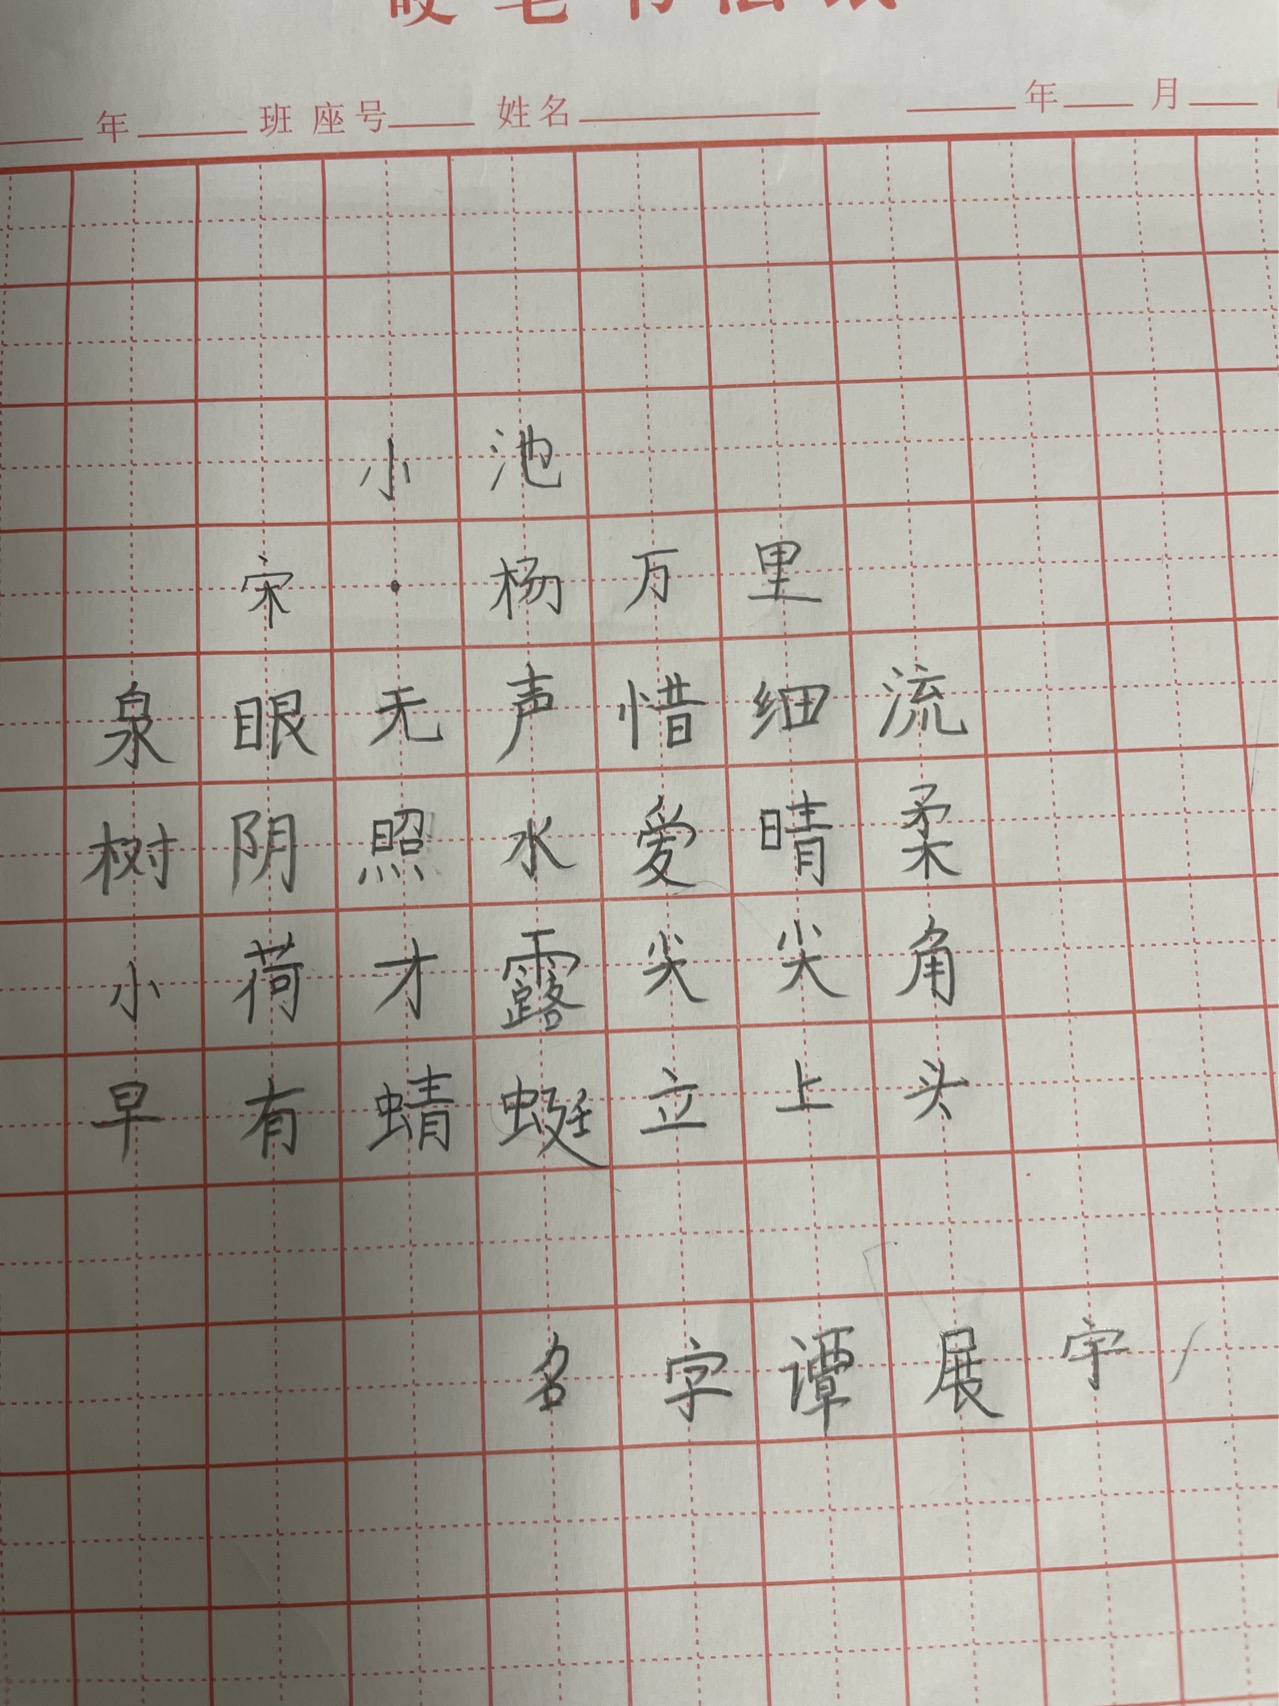 硬笔书法纸
年 班 座号 姓名 年 月
小池
宋·杨万里
泉眼无声惜细流
树阴照水爱晴柔
小荷才露尖尖角
早有蜻蜓立上头
名字谭展宇